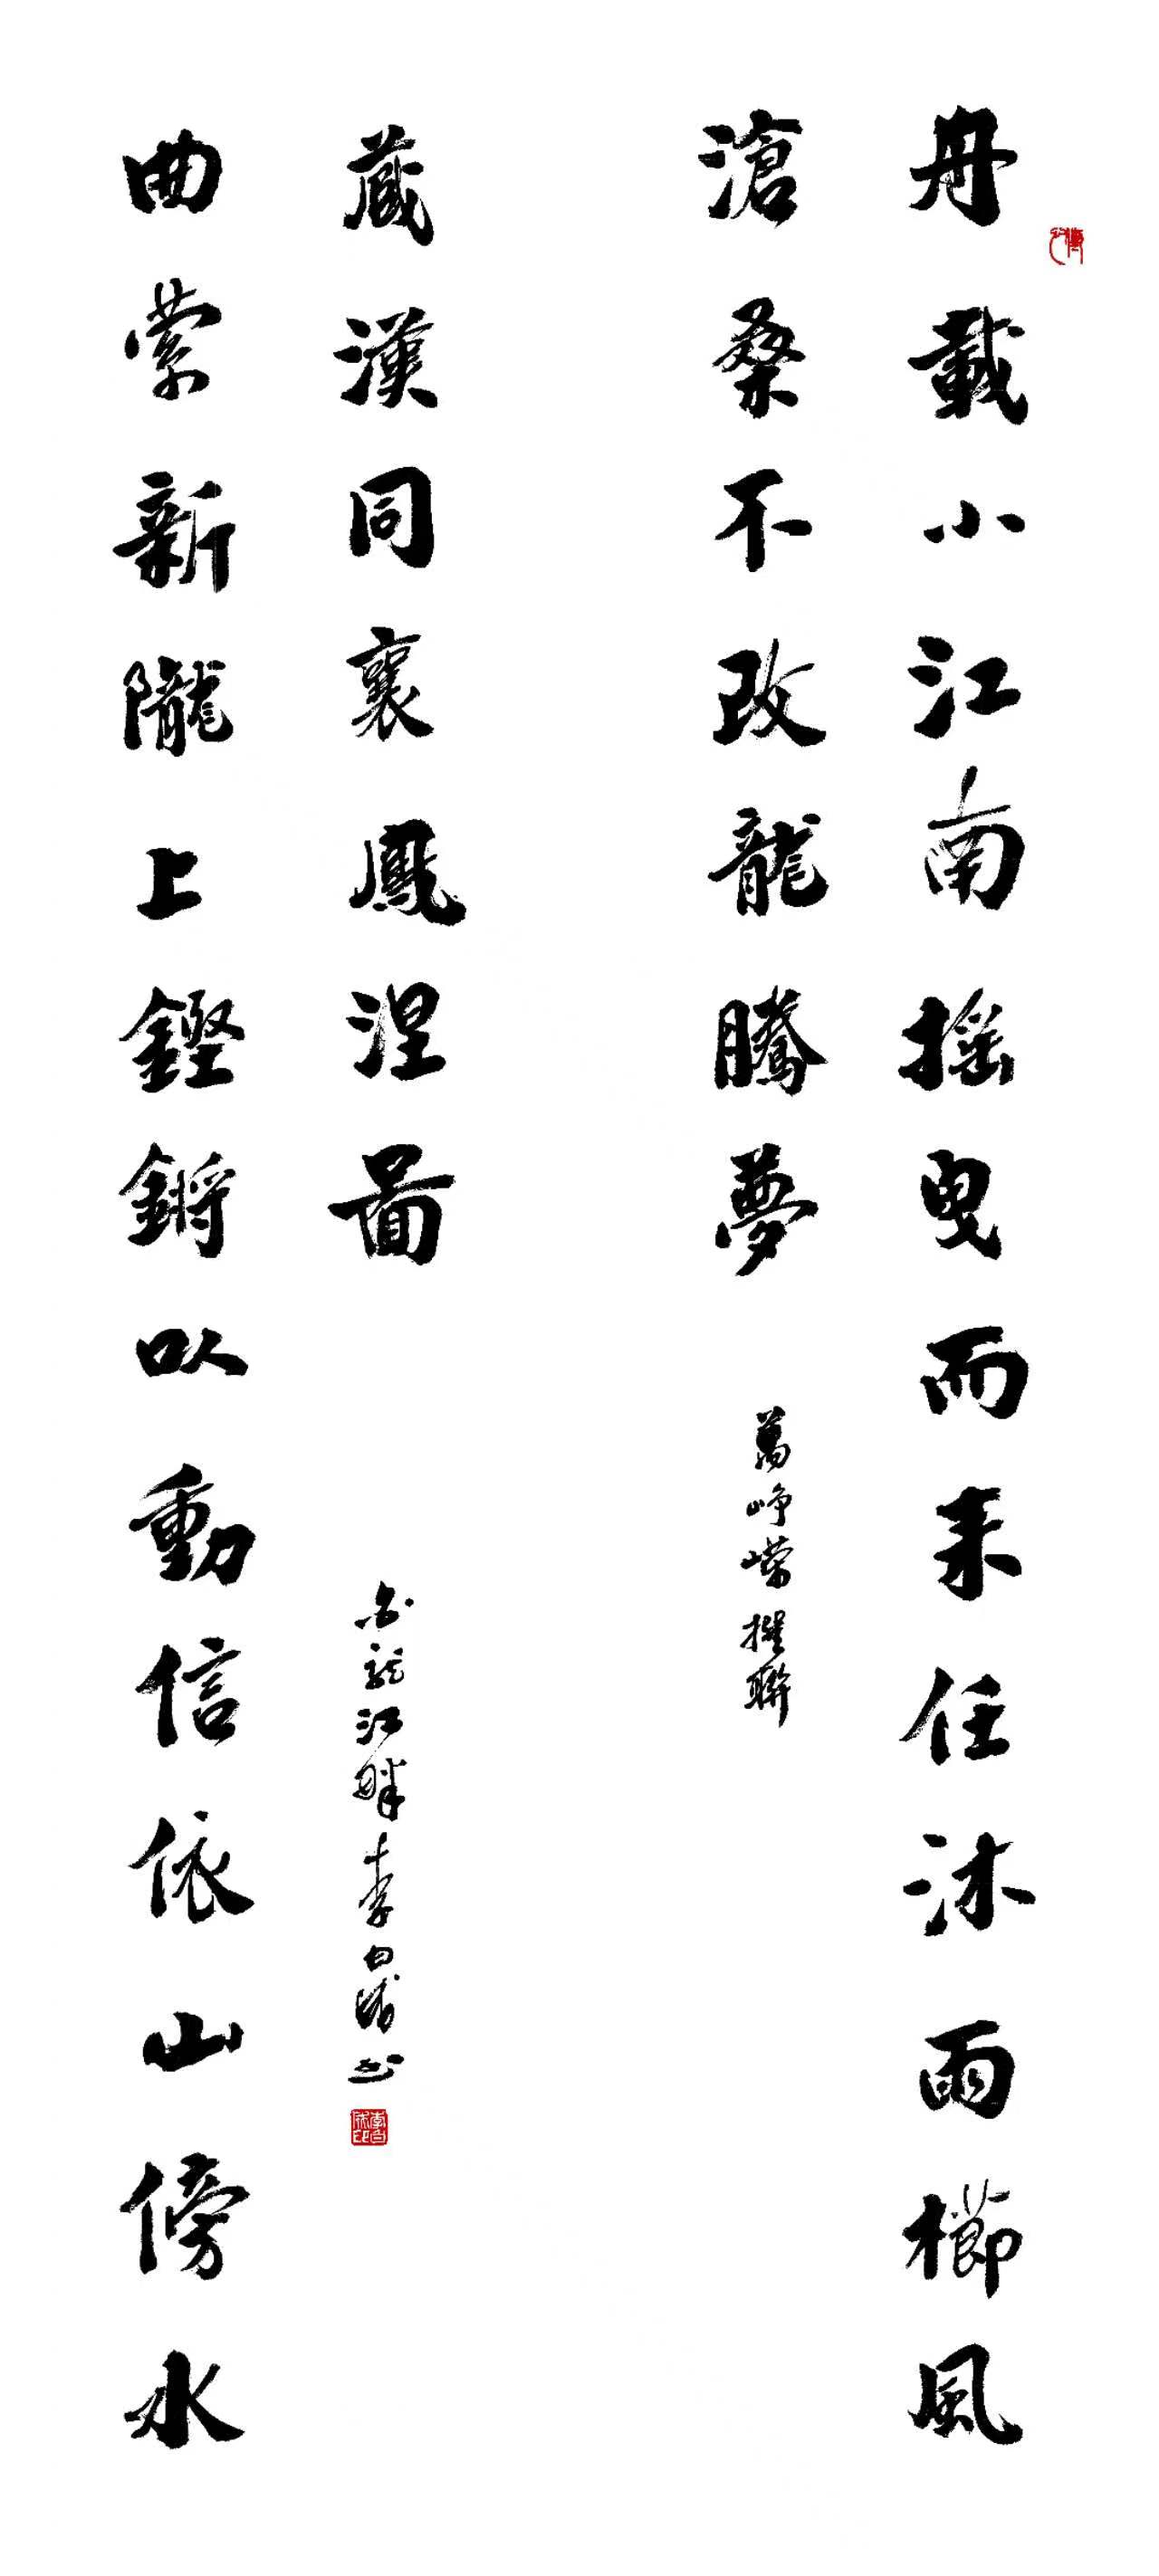 舟載小江南摇曳而来任沐雨櫛風
滄桑不改龍騰夢
萬峥嵘撰聯
曲萦新隴上鏗鏘以動信依山傍水
藏漢同襄鳳涅圖
白龙江畔李白书